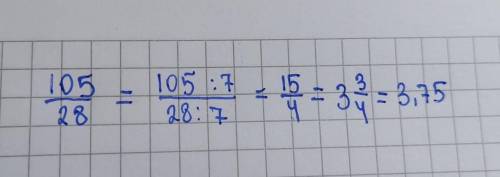 105/28 = 105:7/28:7 = 15/4 = 3 3/4 = 3,75